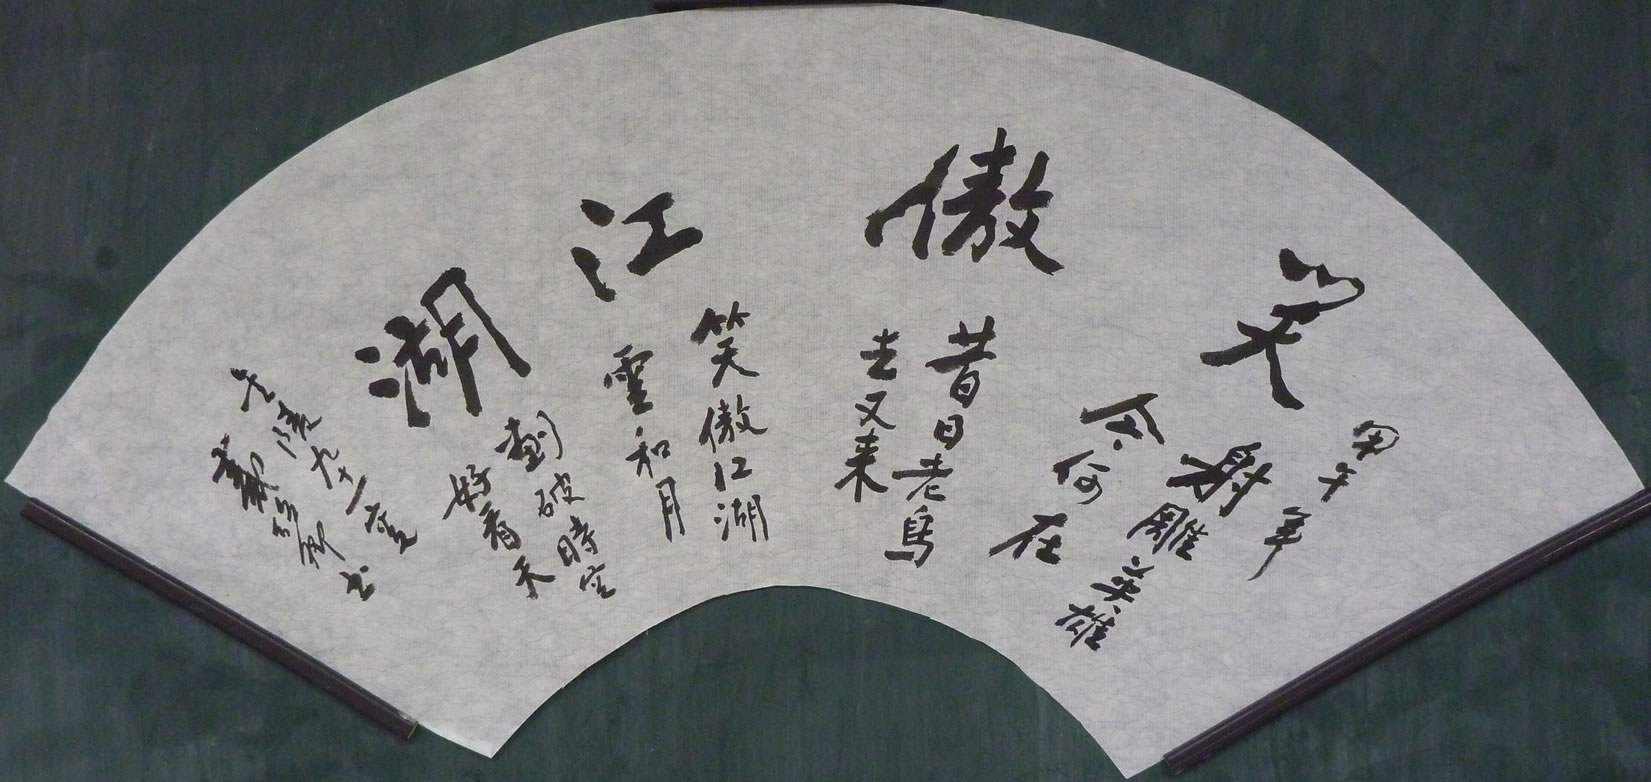 笑傲江湖
甲午年
射雕英雄
今何在
昔日老鳥
去又来
笑傲江湖
雲和月
劃破時空
好看天
陵九十一叟
戴 书